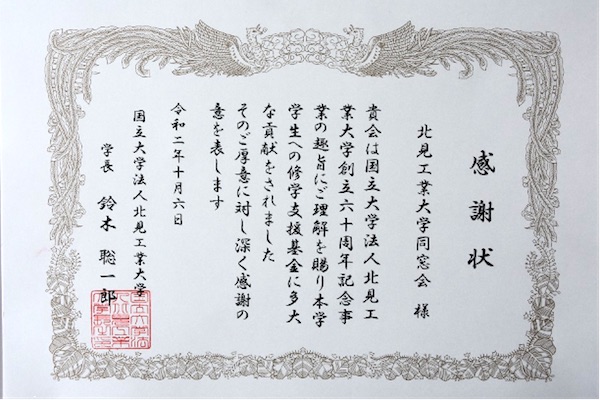 感謝状
北見工業大学同窓会 様
貴会は国立大学法人北見工
業大学創立六十周年記念事
業の趣旨にご理解を賜り本学
学生への修学支援基金に多大
な貢献をされました
そのご厚意に対し深く感謝の
意を表します
令和二年十月六日
国立大学法人北見工業大学
学長 鈴木 聡一郎